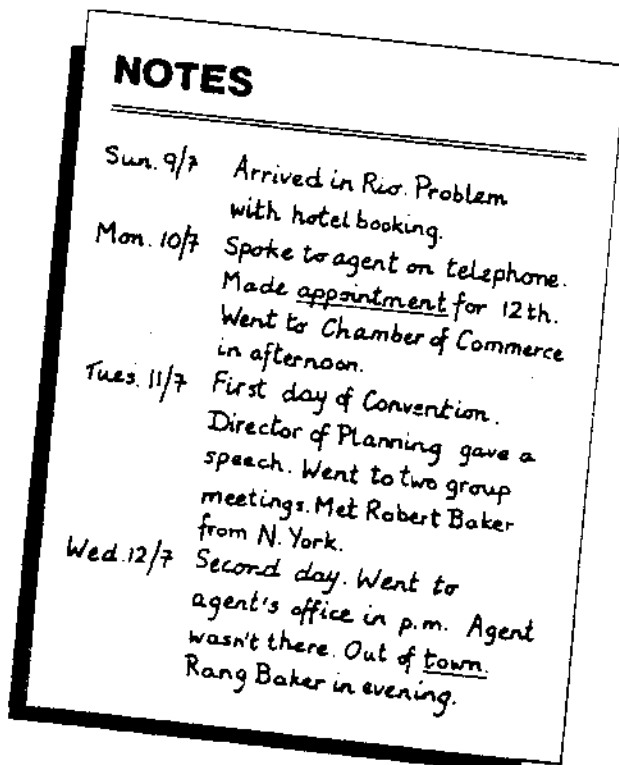 NOTES
Sun. 9/7 Arrived in Rio. Problem
with hotel booking.
Mon. 10/7 Spoke to agent on telephone.
Made appointment for 12th.
Went to Chamber of Commerce
in afternoon.
Tues. 11/7 First day of Convention.
Director of Planning gave a
speech. Went to two group
meetings. Met Robert Baker
from N. York.
Wed. 12/7 Second day. Went to
agent's office in p.m. Agent
wasn't there. Out of town.
Rang Baker in evening.